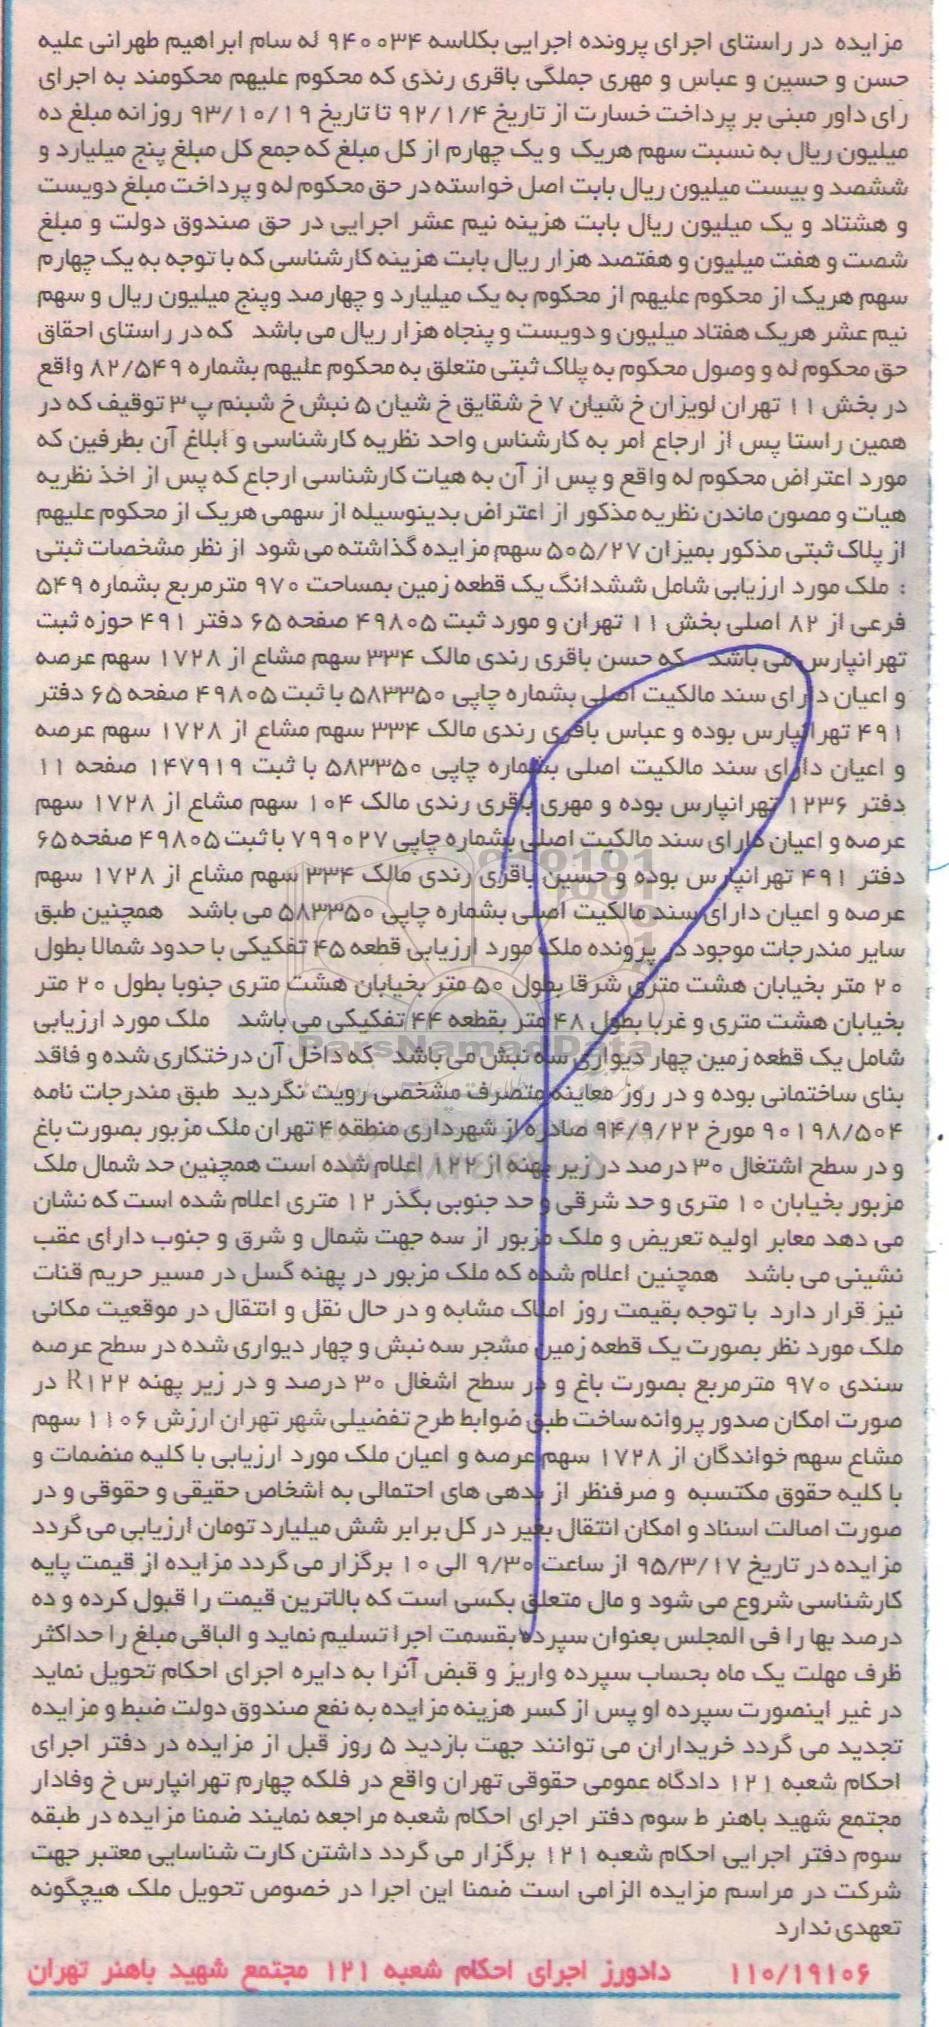 مزایده در راستای اجرای پرونده اجرایی بکلاسه ۹۴۰۰۳۴ له سام ابراهیم طهرانی علیه
حسن و حسین و عباس و مهری جملگی باقری رندی که محکوم علیهم محکومند به اجرای
رای داور مبنی بر پرداخت خسارت از تاریخ ۹۲/۱/۴ تا تاریخ ۹۳/۱۰/۱۹ روزانه مبلغ ده
میلیون ریال به نسبت سهم هریک و یک چهارم از کل مبلغ که جمع کل مبلغ پنج میلیارد و
ششصد و بیست میلیون ریال بابت اصل خواسته در حق محکوم له و پرداخت مبلغ دویست
و هشتاد و یک میلیون ریال بابت هزینه نیم عشر اجرایی در حق صندوق دولت و مبلغ
شصت و هفت میلیون و هفتصد هزار ریال بابت هزینه کارشناسی که با توجه به یک چهارم
سهم هریک از محکوم علیهم از محکوم به یک میلیارد و چهارصد وپنج میلیون ریال و سهم
نیم عشر هریک هفتاد میلیون و دویست و پنجاه هزار ریال می باشد که در راستای احقاق
حق محکوم له و وصول محکوم به پلاک ثبتی متعلق به محکوم علیهم بشماره ۸۲/۵۴۹ واقع
در بخش ۱۱ تهران لویزان خ شیان ۷ خ شقایق خ شیان ۵ نبش خ شبنم پ ۳ توقیف که در
همین راستا پس از ارجاع امر به کارشناس واحد نظریه کارشناسی و ابلاغ آن بطرفین که
مورد اعتراض محکوم له واقع و پس از آن به هیات کارشناسی ارجاع که پس از اخذ نظریه
هیات و مصون ماندن نظریه مذکور از اعتراض بدینوسیله از سهمی هریک از محکوم علیهم
از پلاک ثبتی مذکور بمیزان ۵۰۵/۲۷ سهم مزایده گذاشته می شود از نظر مشخصات ثبتی
: ملک مورد ارزیابی شامل ششدانگ یک قطعه زمین بمساحت ۹۷۰ مترمربع بشماره ۵۴۹
فرعی از ۸۲ اصلی بخش ۱۱ تهران و مورد ثبت ۴۹۸۰۵ صفحه ۶۵ دفتر ۴۹۱ حوزه ثبت
تهرانپارس می باشد که حسن باقری رندی مالک ۳۳۴ سهم مشاع از ۱۷۲۸ سهم عرصه
و اعیان دارای سند مالکیت اصلی بشماره چاپی ۵۸۳۳۵۰ با ثبت ۴۹۸۰۵ صفحه ۶۵ دفتر
۴۹۱ تهرانپارس بوده و عباس باقری رندی مالک ۳۳۴ سهم مشاع از ۱۷۲۸ سهم عرصه
و اعیان دارای سند مالکیت اصلی بشماره چاپی ۵۸۳۳۵۰ با ثبت ۱۴۷۹۱۹ صفحه ۱۱
دفتر ۱۲۳۶ تهرانپارس بوده و مهری باقری رندی مالک ۱۰۴ سهم مشاع از ۱۷۲۸ سهم
عرصه و اعیان دارای سند مالکیت اصلی بشماره چاپی ۷۹۹۰۲۷ با ثبت ۴۹۸۰۵ صفحه ۶۵
دفتر ۴۹۱ تهرانپارس بوده و حسین باقری رندی مالک ۳۳۴ سهم مشاع از ۱۷۲۸ سهم
عرصه و اعیان دارای سند مالکیت اصلی بشماره چاپی ۵۸۳۳۵۰ می باشد همچنین طبق
سایر مندرجات موجود در پرونده ملک مورد ارزیابی قطعه ۴۵ تفکیکی با حدود شمالا بطول
۲۰ متر بخیابان هشت متری شرقا بطول ۵۰ متر بخیابان هشت متری جنوبا بطول ۲۰ متر
بخیابان هشت متری و غربا بطول ۴۸ متر بقطعه ۴۴ تفکیکی می باشد ملک مورد ارزیابی
ParsNamadData
شامل یک قطعه زمین چهار دیواری سه نبش می باشد که داخل آن درختکاری شده و فاقد
بنای ساختمانی بوده و در روز معاینه متصرف مشخصی رویت نگردید طبق مندرجات نامه
۹۰۱۹۸/۵۰۴ مورخ ۹۴/۹/۲۲ صادره از شهرداری منطقه ۴ تهران ملک مزبور بصورت باغ
و در سطح اشتغال ۳۰ درصد در زیر پهنه از ۱۲۲ اعلام شده است همچنین حد شمال ملک
مزبور بخیابان ۱۰ متری و حد شرقی و حد جنوبی بگذر ۱۲ متری اعلام شده است که نشان
می دهد معابر اولیه تعریض و ملک مزبور از سه جهت شمال و شرق و جنوب دارای عقب
نشینی می باشد همچنین اعلام شده که ملک مزبور در پهنه گسل در مسیر حریم قنات
نیز قرار دارد با توجه بقیمت روز املاک مشابه و در حال نقل و انتقال در موقعیت مکانی
ملک مورد نظر بصورت یک قطعه زمین مشجر سه نبش و چهار دیواری شده در سطح عرصه
سندی ۹۷۰ مترمربع بصورت باغ و در سطح اشغال ۳۰ درصد و در زیر پهنه R۱۲۲ در
صورت امکان صدور پروانه ساخت طبق ضوابط طرح تفضیلی شهر تهران ارزش ۱۱۰۶ سهم
مشاع سهم خواندگان از ۱۷۲۸ سهم عرصه و اعیان ملک مورد ارزیابی با کلیه منضمات و
با کلیه حقوق مکتسبه و صرفنظر از بدهی های احتمالی به اشخاص حقیقی و حقوقی و در
صورت اصالت اسناد و امکان انتقال بغیر در کل برابر شش میلیارد تومان ارزیابی می گردد
مزایده در تاریخ ۹۵/۳/۱۷ از ساعت ۹/۳۰ الی ۱۰ برگزار می گردد مزایده از قیمت پایه
کارشناسی شروع می شود و مال متعلق بکسی است که بالاترین قیمت را قبول کرده و ده
درصد بها را فی المجلس بعنوان سپرده بقسمت اجرا تسلیم نماید و الباقی مبلغ را حداکثر
ظرف مهلت یک ماه بحساب سپرده واریز و قبض آنرا به دایره اجرای احکام تحویل نماید
در غیر اینصورت سپرده او پس از کسر هزینه مزایده به نفع صندوق دولت ضبط و مزایده
تجدید می گردد خریداران می توانند جهت بازدید ۵ روز قبل از مزایده در دفتر اجرای
احکام شعبه ۱۲۱ دادگاه عمومی حقوقی تهران واقع در فلکه چهارم تهرانپارس خ وفادار
مجتمع شهید باهنر ط سوم دفتر اجرای احکام شعبه مراجعه نمایند ضمنا مزایده در طبقه
سوم دفتر اجرایی احکام شعبه ۱۲۱ برگزار می گردد داشتن کارت شناسایی معتبر جهت
شرکت در مراسم مزایده الزامی است ضمنا این اجرا در خصوص تحویل ملک هیچگونه
تعهدی ندارد
۱۱۰/۱۹۱۰۶ دادورز اجرای احکام شعبه ۱۲۱ مجتمع شهید باهنر تهران